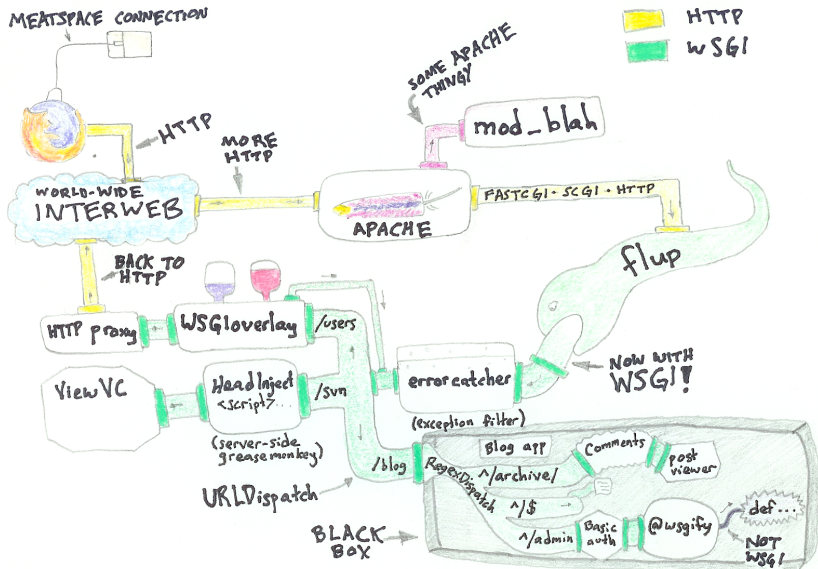 MEATSPACE CONNECTION
HTTP
WSGI
SOME APACHE
THINGY
mod_blah
HTTP
MORE
HTTP
WORLD-WIDE
INTERWEB
APACHE
FASTCGI · SCGI · HTTP
flup
BACK TO
HTTP
HTTP proxy
WSGIoverlay
/users
NOW WITH
WSGI!
errorcatcher
(exception filter)
ViewVC
HeadInject
<script>...
/svn
(server-side
greasemonkey)
/blog
URLDispatch
BLACK
BOX
Blog app
RegexDispatch
^/archive/
Comments
post
viewer
^/$
^/admin
Basic
auth
@wsgify
def...
NOT
WSGI